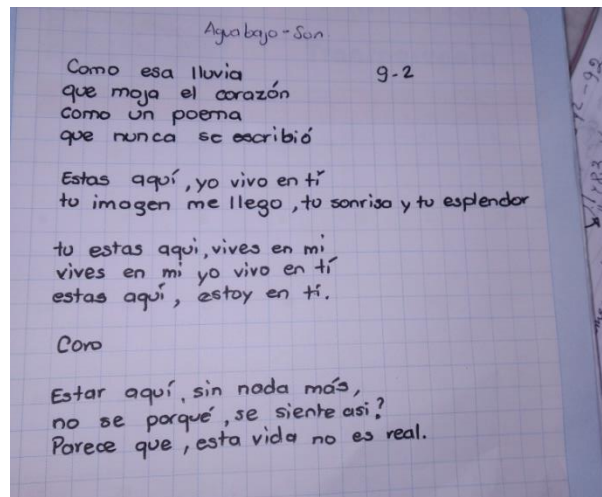 Aguabajo-Son
Como esa lluvia 9-2
que moja el corazón
Como un poema
que nunca se escribió
Estas aquí, yo vivo en tí
tu imagen me llego, tu sonrisa y tu esplendor
tu estas aqui, vives en mi
vives en mi yo vivo en tí
estas aquí, estoy en tí.
Coro
Estar aquí, sin nada más,
no se porqué, se siente asi?
Parece que, esta vida no es real.